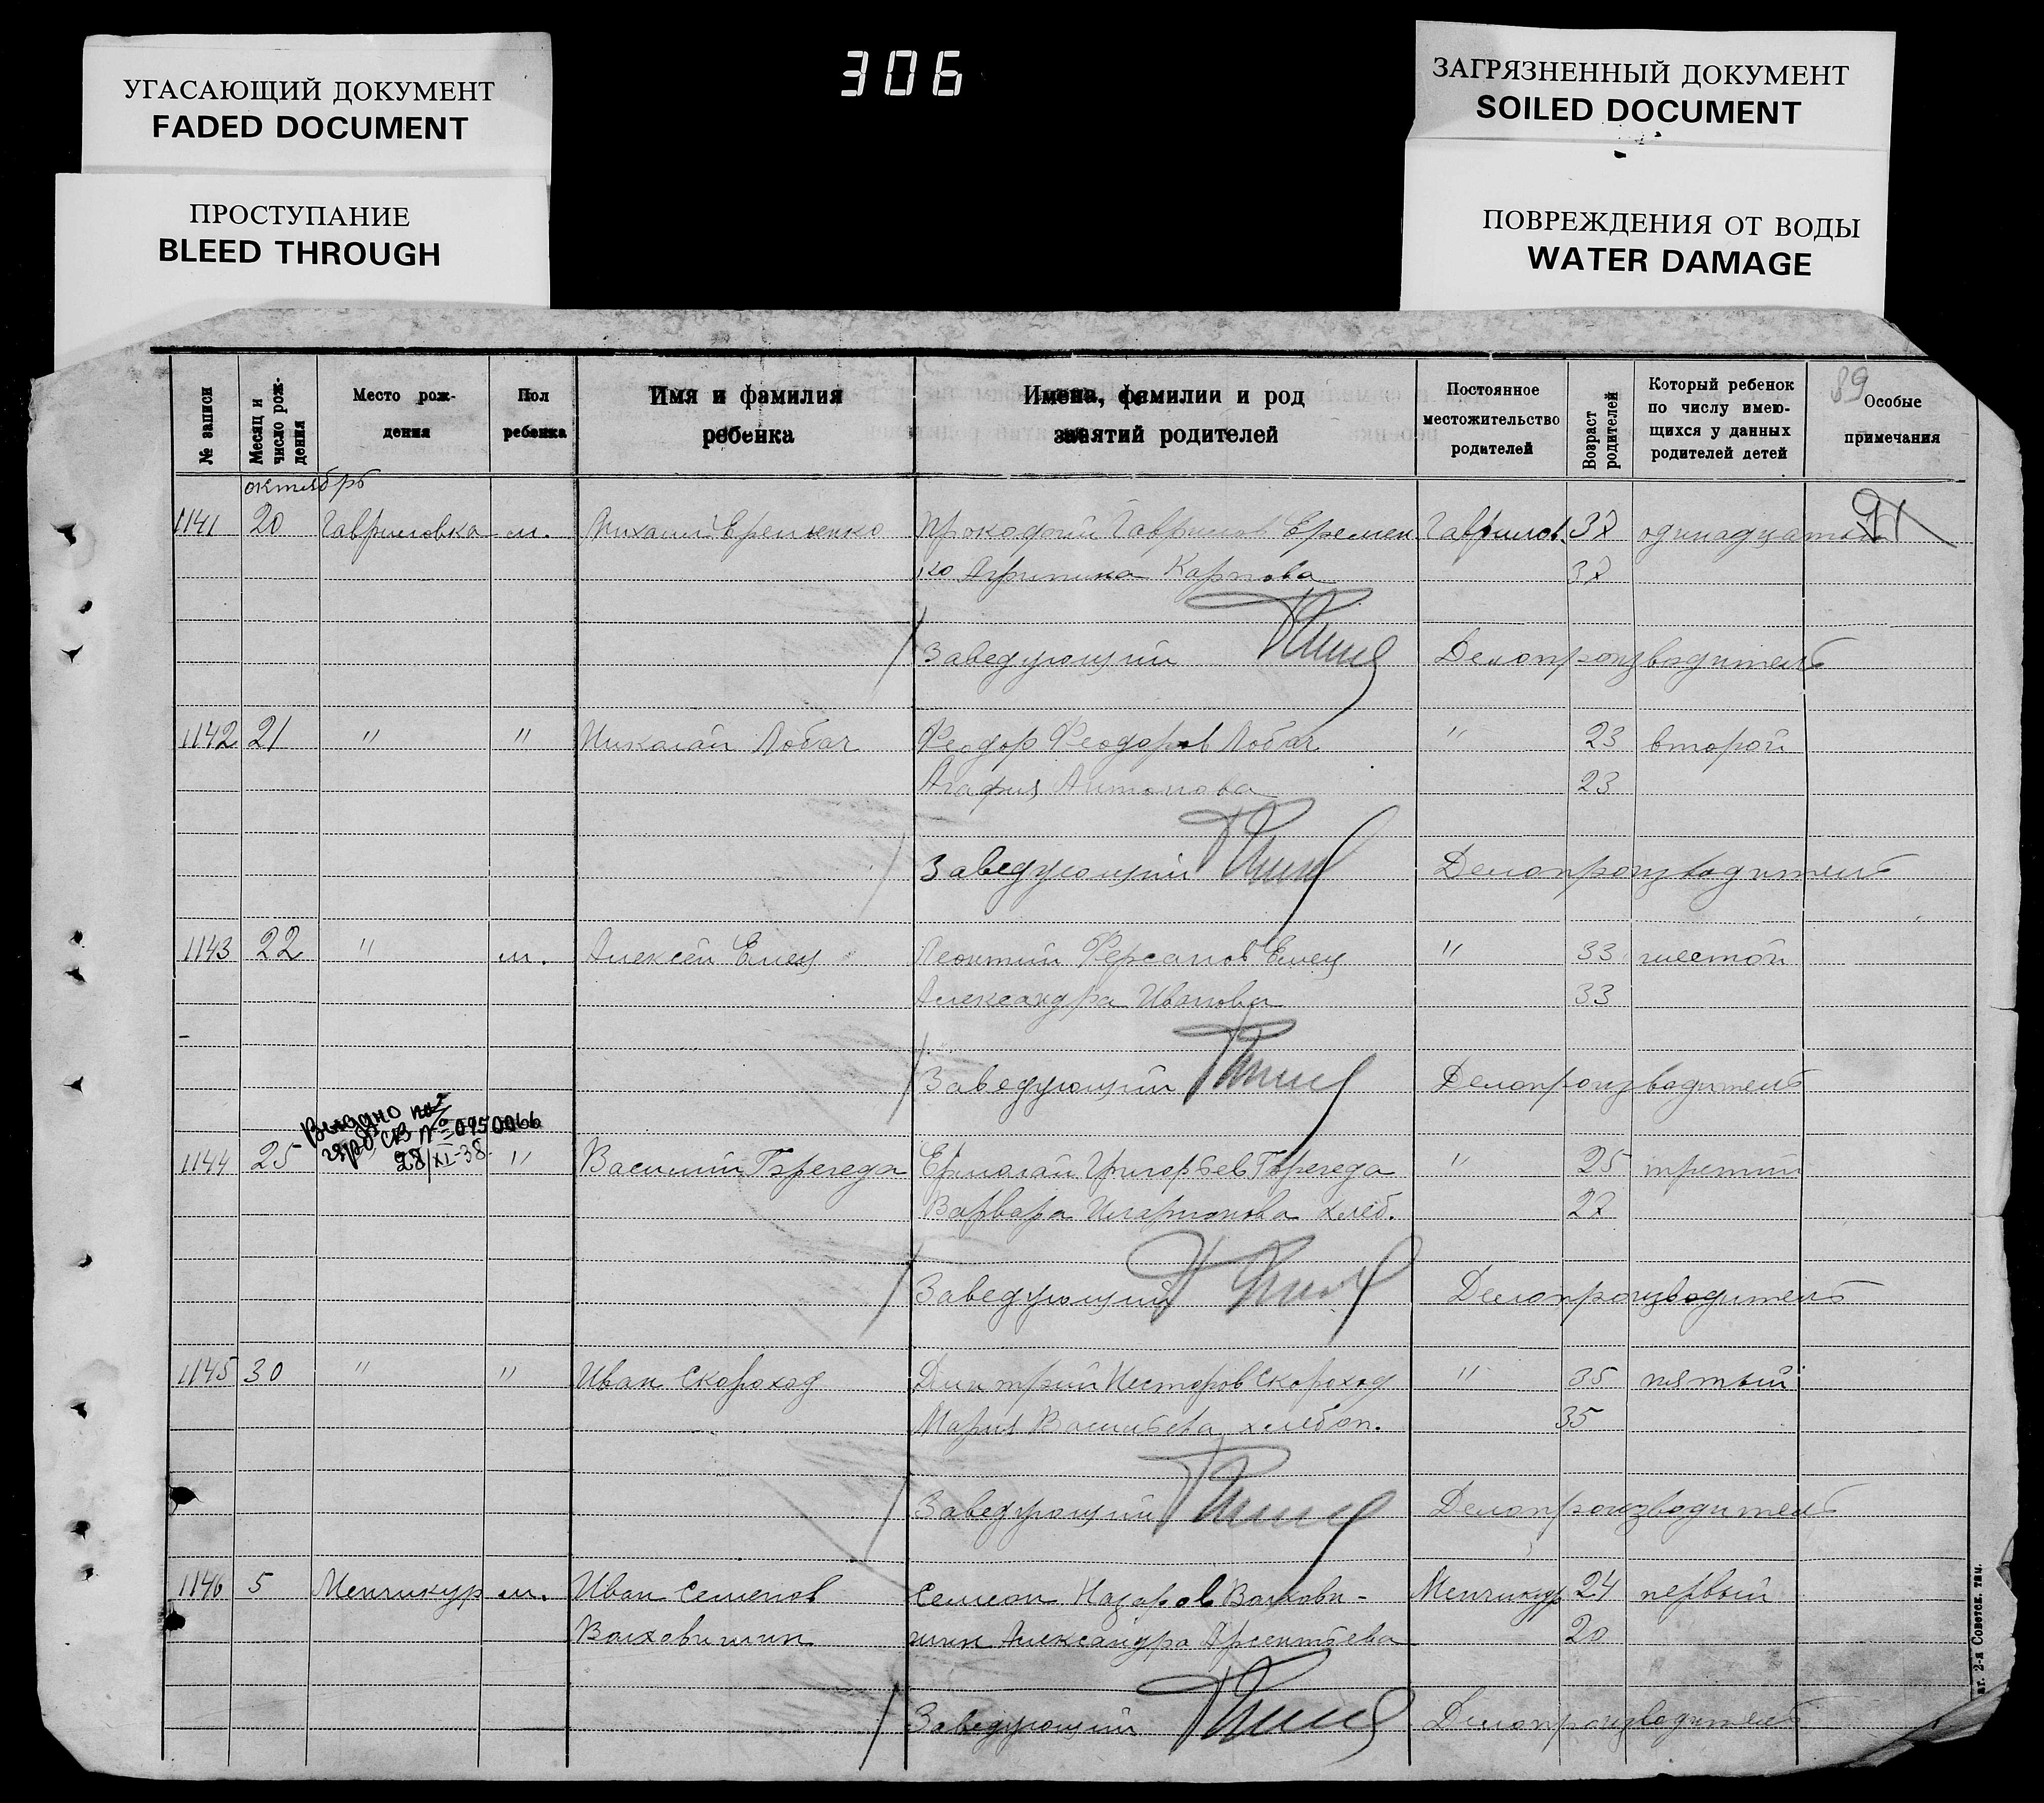 306
УГАСАЮЩИЙ ДОКУМЕНТ
FADED DOCUMENT
ПРОСТУПАНИЕ
BLEED THROUGH
ЗАГРЯЗНЕННЫЙ ДОКУМЕНТ
SOILED DOCUMENT
ПОВРЕЖДЕНИЯ ОТ ВОДЫ
WATER DAMAGE
89
№ записи
Месяц и число рож-дения
Место рож-
дения
Пол
ребенка
Имя и фамилия
ребенка
Имена, фамилии и род
занятий родителей
Постоянное
местожительство
родителей
Возраст родителей
Который ребенок
по числу имею-
щихся у данных
родителей детей
Особые
примечания
октябрь
91
1141 20 Гавриловка м. Михаил Еременко Прокофий Гаврилов Еремен Гаврилов. 37 одинадцатый
ко Агрипина Карпова 37
Заведующий Делопроизводитель
1142 21 " " Николай Лобач Феодор Феодоров Лобач " 23 второй
Агафия Антонова 23
Заведующий Делопроизводитель
1143 22 " м. Алексей Емец Леонтий Емец " 33 шестой
Александра Иванова 33
Заведующий Делопроизводитель
Выдано
св № 0950066
28/XI-38
1144 25 " Василий Ермолай Григорьев " 25 третий
Варвара хлеб. 27
Заведующий Делопроизводитель
1145 30 " " Иван Скороход Дмитрий Несторов Скороход " 35 пятый
Мария Васильева хлебоп. 35
Заведующий Делопроизводитель
1146 5 Менчикур м. Иван Семенов Семен Назаров Волхови- Менчикур 24 первый
Волховитин тин Александра Арсентьева 20
Заведующий Делопроизводитель
2-я Советск. тип.